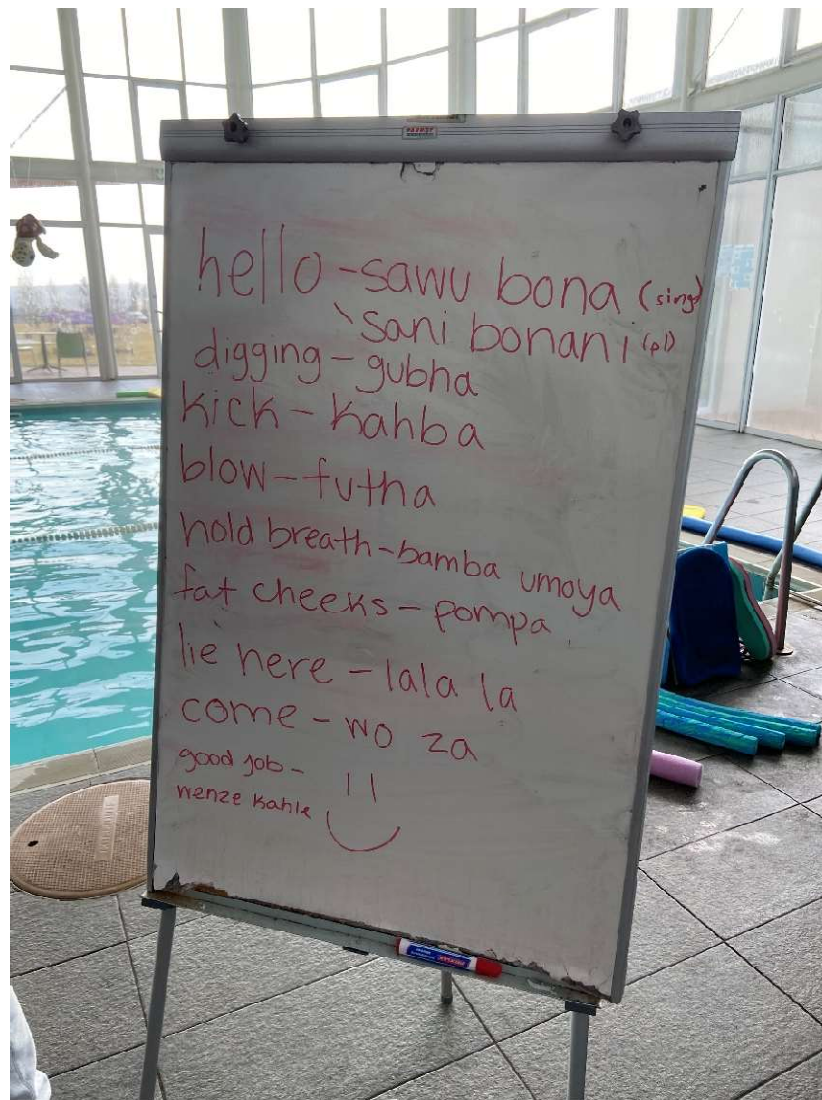 hello - sawu bona (sing)
sani bonani (pl)
digging - gubha
kick - kahba
blow - futha
hold breath - bamba umoya
fat cheeks - pompa
lie here - lala la
come - wo za
good job -
wenze kahle